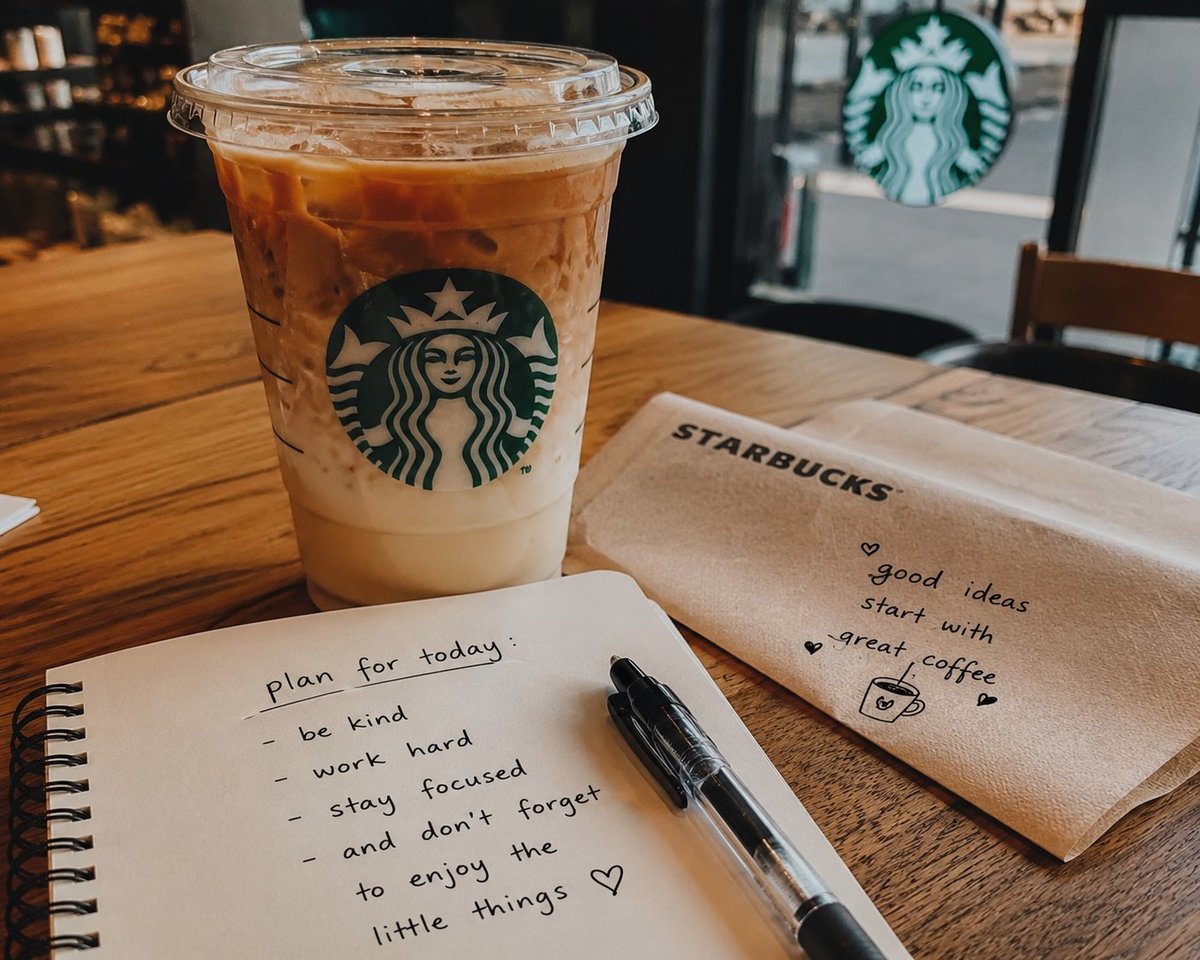 STARBUCKS
good ideas
start with
great coffee
TM
plan for today:
- be kind
- work hard
- stay focused
- and don't forget
to enjoy the
little things